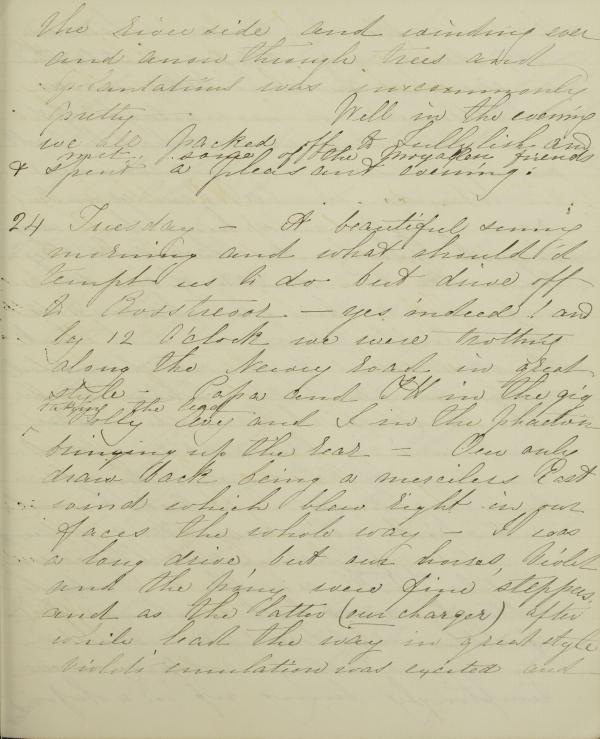 the river side and winding ever
and anon through trees and
plantations was uncommonly
pretty Well in the evening
we all packed off to Tullylish and
met some of the Moyallen friends
& spent a pleasant evening.
24 Tuesday — A beautiful sunny
morning and what should 'd
tempt us to do but drive off
to Rosstrevor — yes indeed! and
by 12 O'clock we were trotting
along the Newry road in great
style — Papa and in the gig
taking the lead
Polly and I in the phaeton
bringing up the rear — Our only
draw back being a merciless East
wind which blew right in our
faces the whole way — It was
a long drive but our horses, Violet
and the pony were fine steppers,
and as the latter (our charger) after
while lead the way in great style
Violet's emulation was excited and